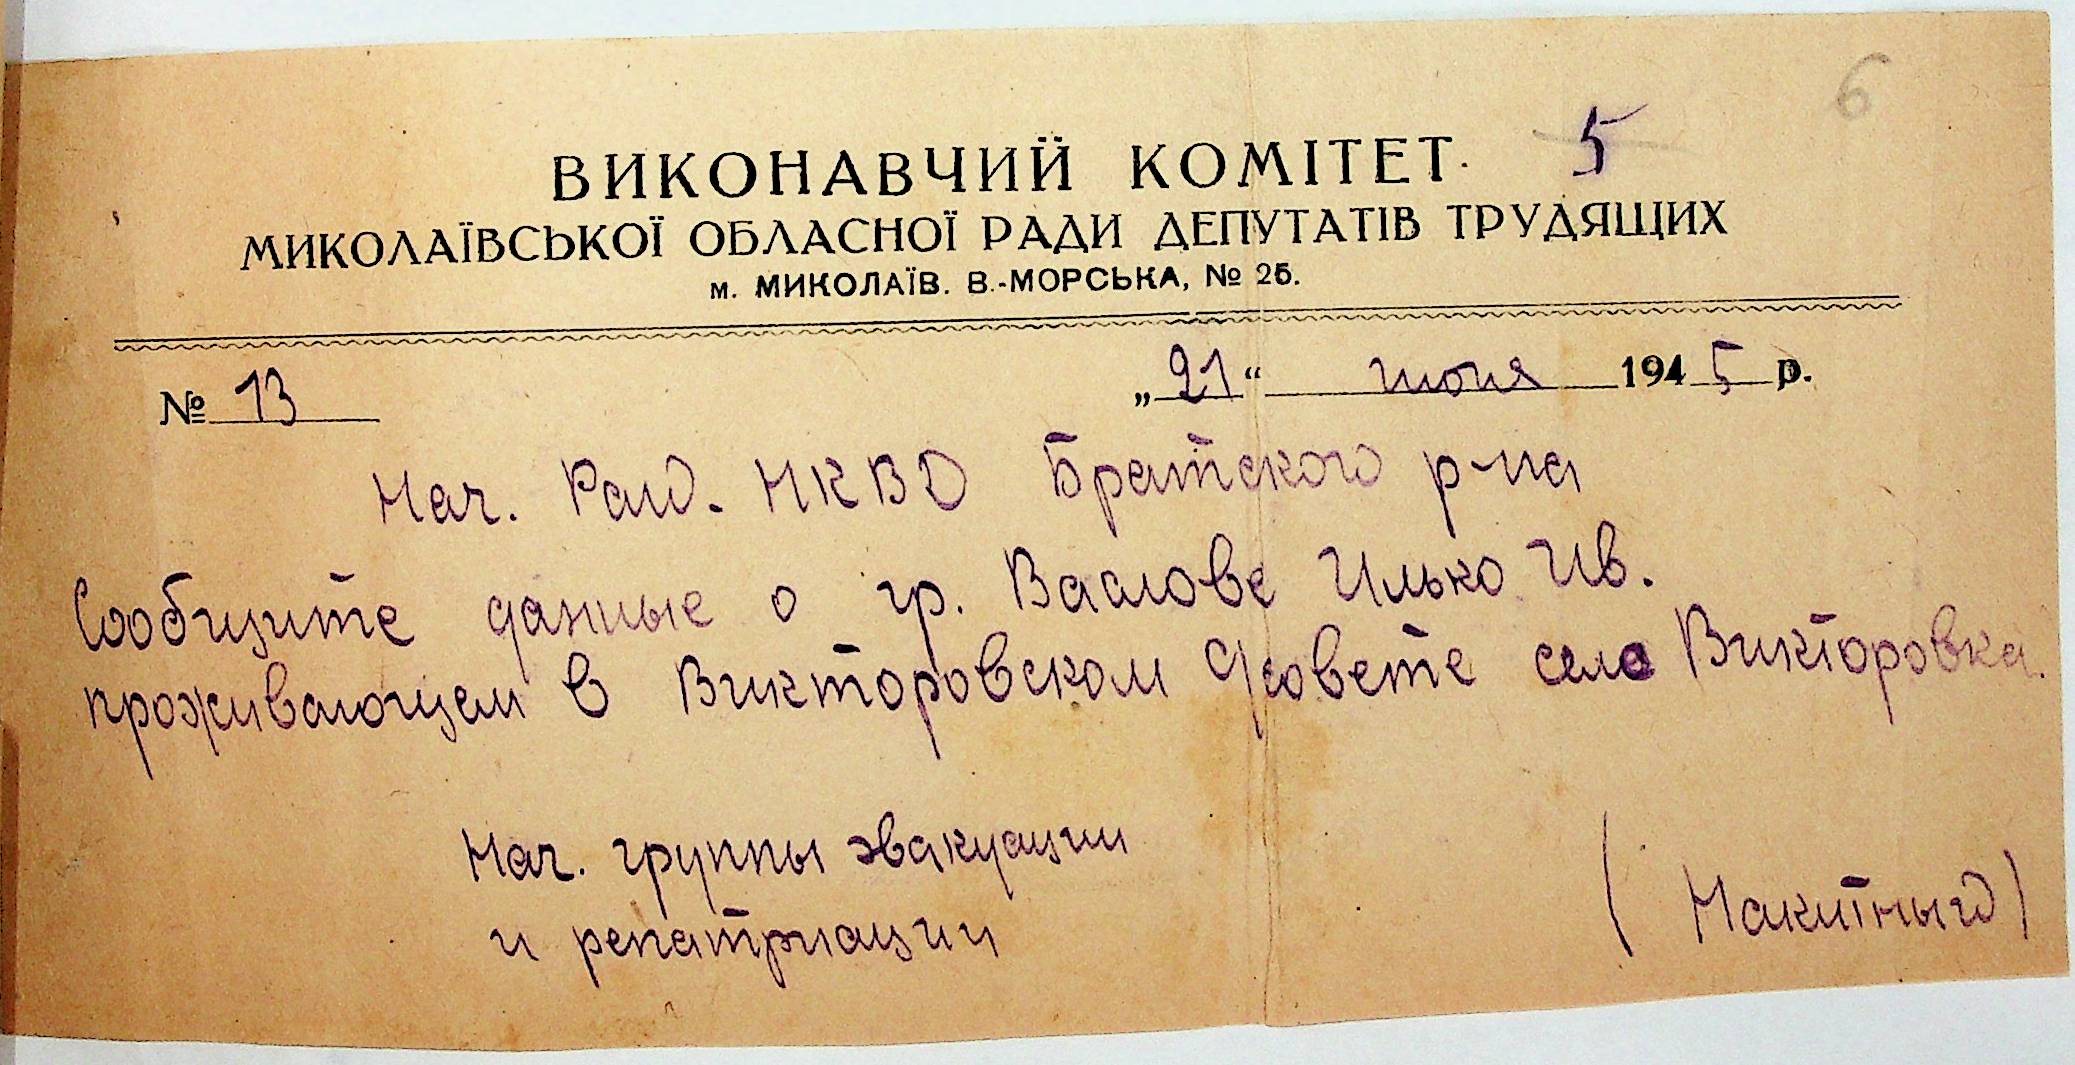 6
5
ВИКОНАВЧИЙ КОМІТЕТ
МИКОЛАЇВСЬКОЇ ОБЛАСНОЇ РАДИ ДЕПУТАТІВ ТРУДЯЩИХ
м. МИКОЛАЇВ. В.-МОРСЬКА, № 25.
№ 13 „21“ июня 1945 р.
Нач. НКВД Братского р-на
Сообщите данные о гр. Илько Ив.
проживающем в Викторовском с/совете село Викторовка.
Нач. группы эвакуации
и репатриации (Макитный)